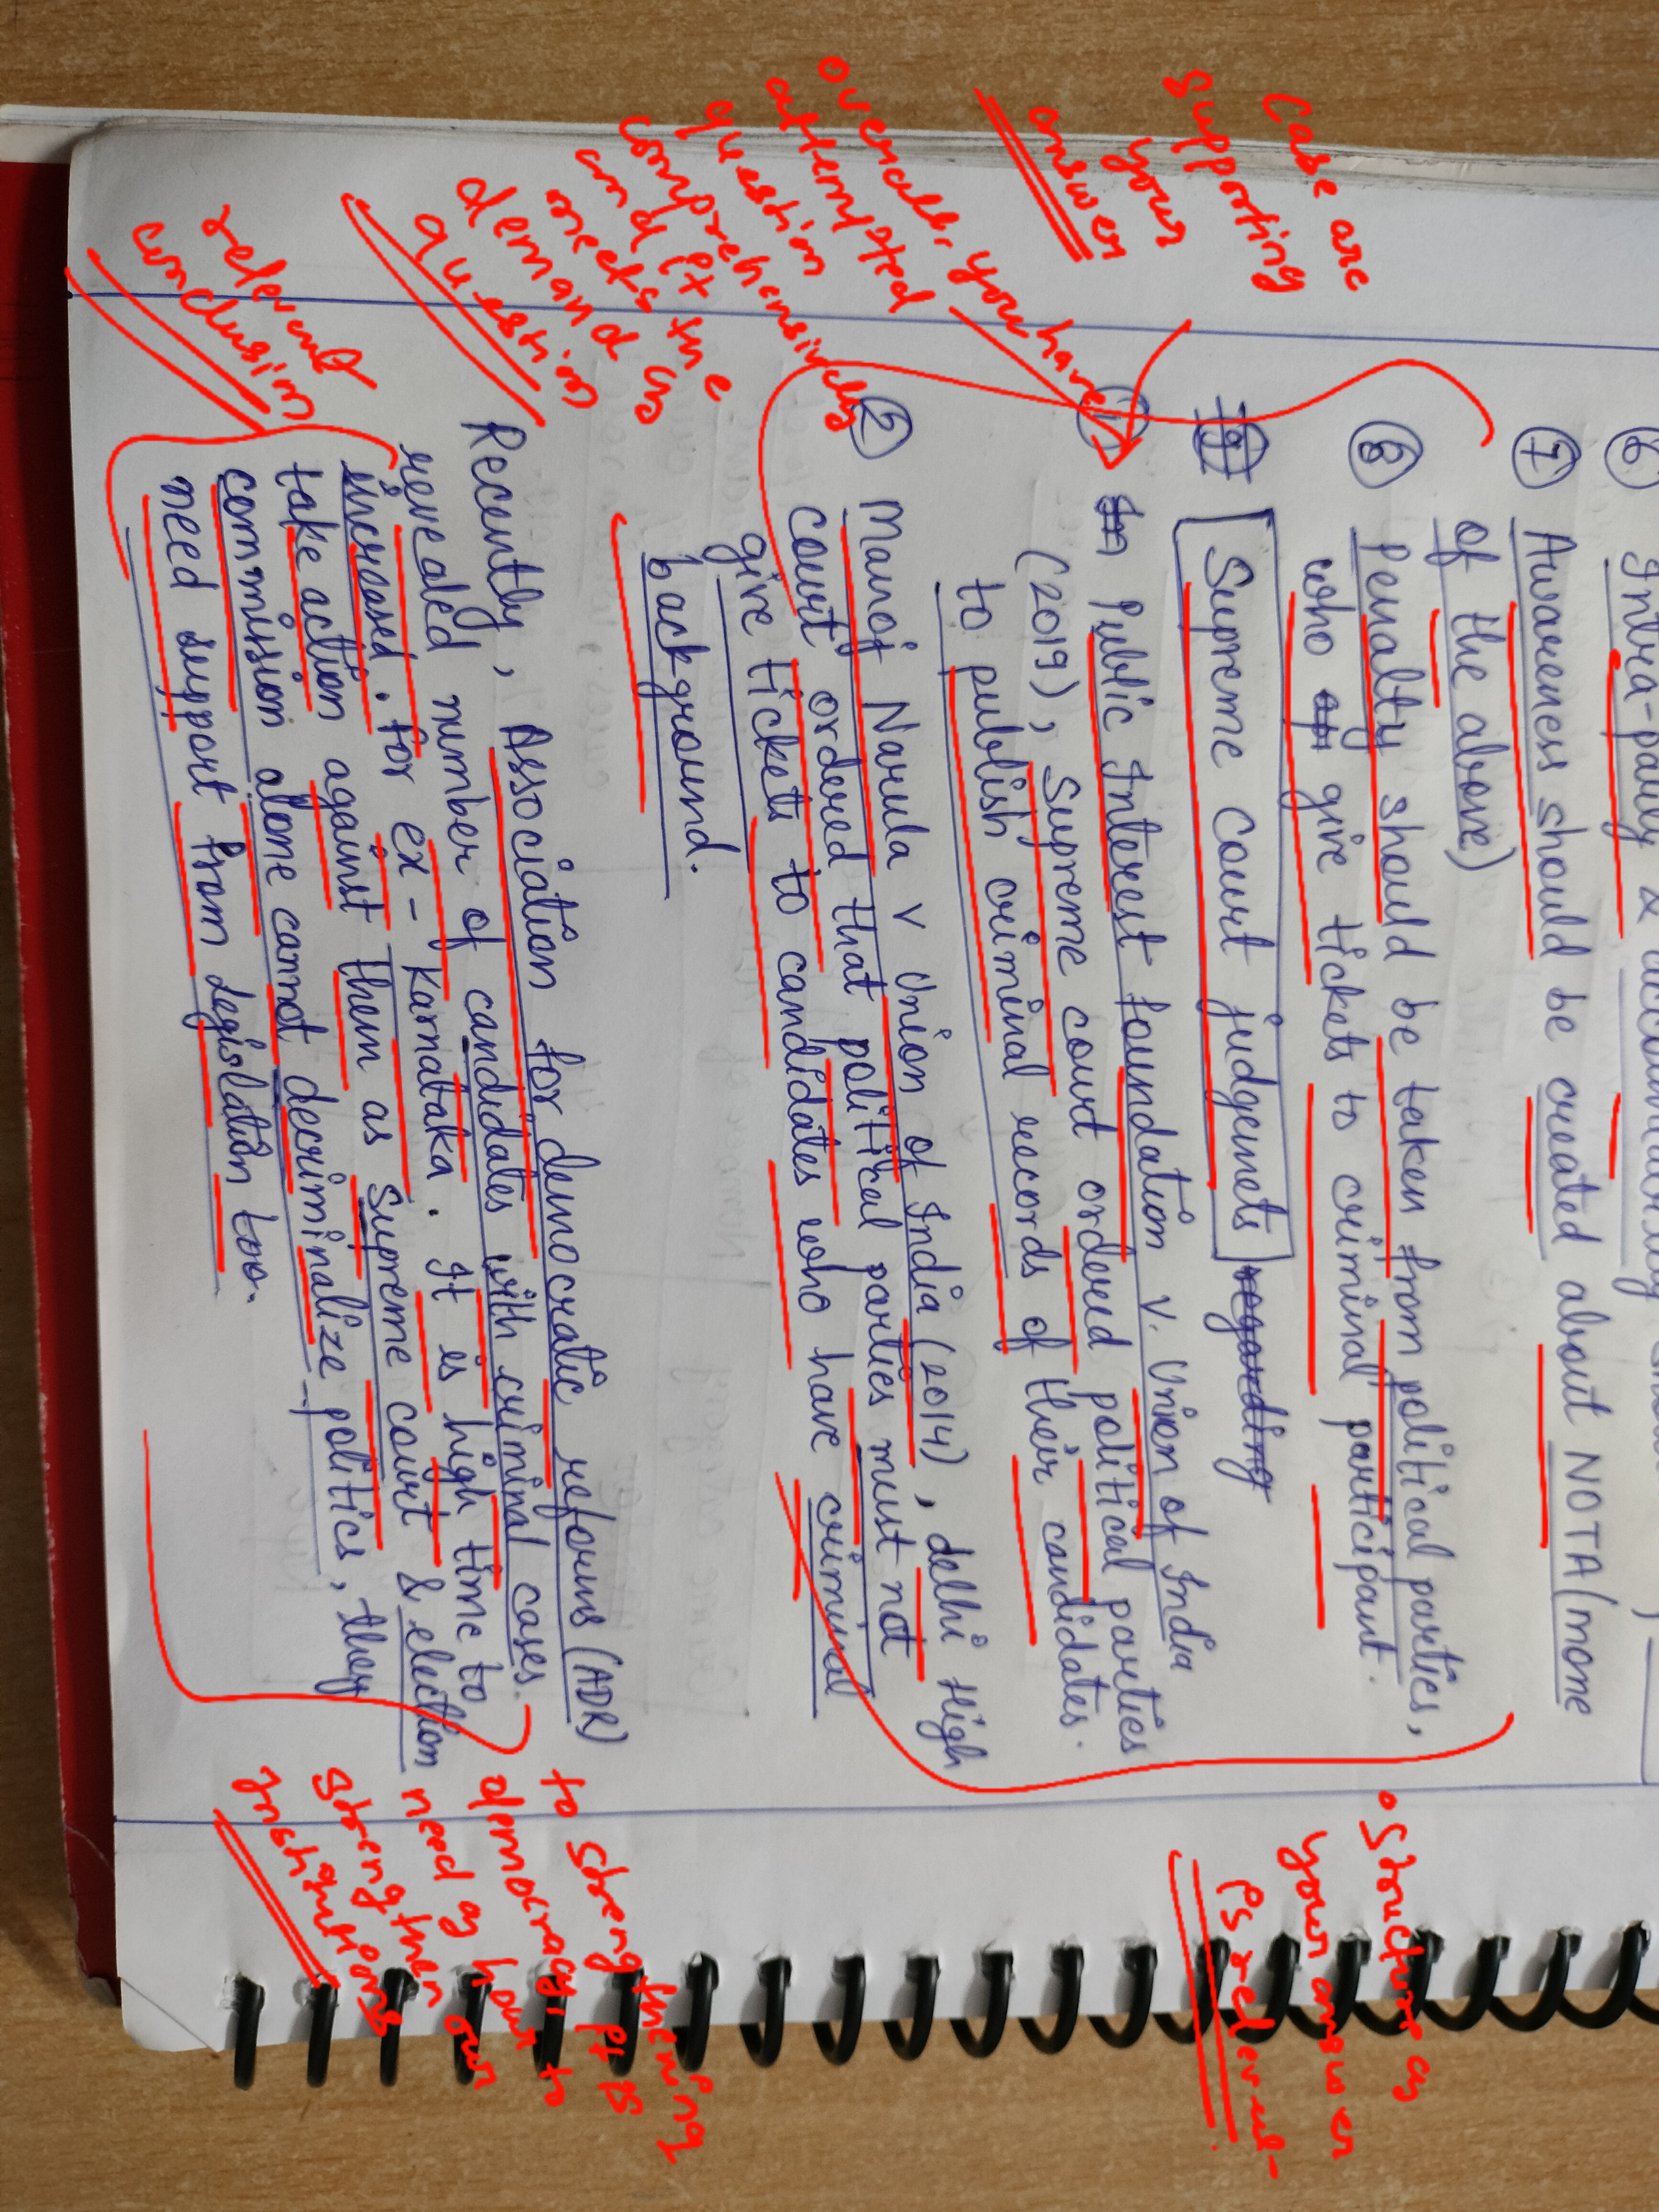 6 Intra-party & accountability
7 Awareness should be created about NOTA (none
of the above)
8 Penalty should be taken from political parties,
who give tickets to criminal participant.
Supreme Court judgemets regarding
1 In Public Interest foundation v. Union of India
(2019), Supreme court ordered political parties
to publish criminal records of their candidates.
2 Manoj Narula v Union of India (2014), delhi High
court ordered that political parties must not
give tickets to candidates who have criminal
background.
Recently, Association for democratic reforms (ADR)
revealed number of candidates with criminal cases
increased. for ex- Karnataka. It is high time to
take action against them as Supreme court & election
commission alone cannot decriminalize politics, they
need support from legislation too.
Case are
supporting
your
answer
overall, you have
attempted
question
comprehensively
and it
meets the
demand of
question
relevant
conclusion
• Structure of
your answer
is relevant.
to strengthening
democracy it is
need of hour to
strengthen our
institutions